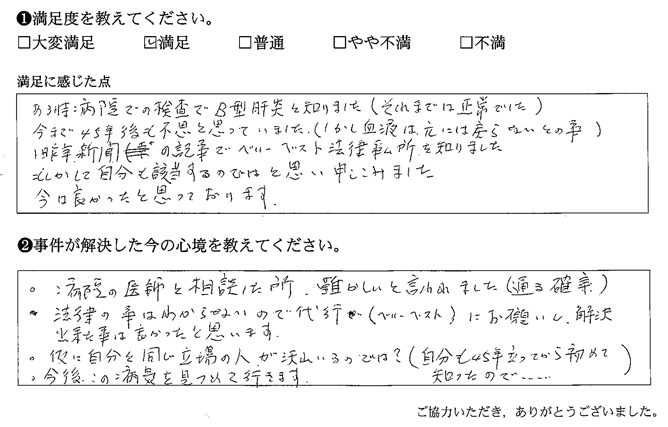 ❶満足度を教えてください。
□大変満足 ☑満足 □普通 □やや不満 □不満
満足に感じた点
ある時病院での検査でB型肝炎を知りました（それまでは正常でした）
今まで45年後も不思と思っていました（しかし血液は元には戻らないとの事）
1昨年新聞の記事でベリーベスト法律事ム所を知りました
もしかして自分も該当するのではと思い申しこみました
今は良かったと思っております。
❷事件が解決した今の心境を教えてください。
○病院の医師と相談した所、難かしいと言われました（通る確率）
法律の事はわからないので代行（ベリーベスト）にお願いし、解決
出来た事は良かったと思います。
○仮に自分と同じ立場の人が沢山いるのでは？（自分も45年立ってから初めて
知ったので……）
○今後この病気を見つめて行きます。
ご協力いただき，ありがとうございました。